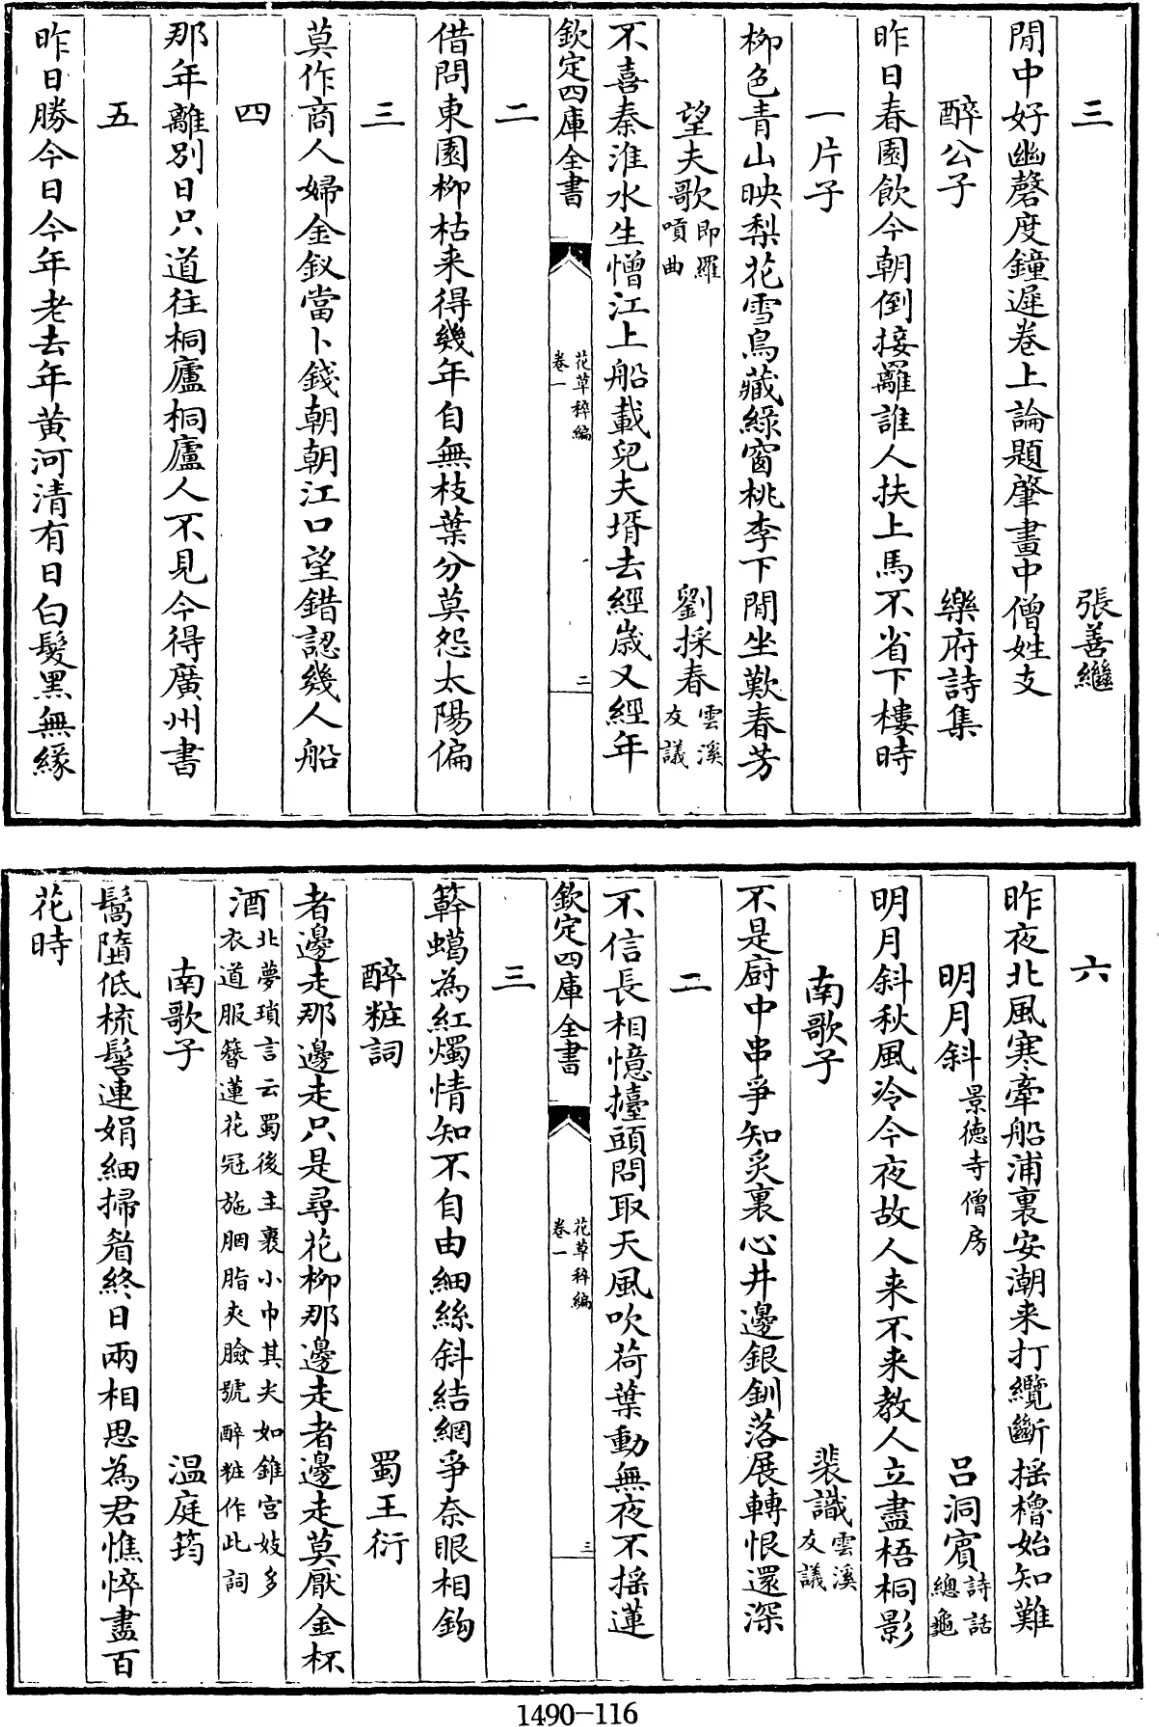 三 張善繼
閒中好幽磬度鐘遲卷上論題肇畫中僧姓支
醉公子 樂府詩集
昨日春園飲今朝倒接䍦誰人扶上馬不省下樓時
一片子
柳色青山映梨花雪鳥藏綠窗桃李下閒坐歎春芳
望夫歌即羅嗊曲 劉採春雲溪友議
不喜秦淮水生憎江上船載兒夫壻去經歲又經年
欽定四庫全書 花草稡編卷一 二
二
借問東園柳枯来得幾年自無枝葉分莫怨太陽偏
三
莫作商人婦金釵當卜錢朝朝江口望錯認幾人船
四
那年離別日只道往桐廬桐廬人不見今得廣州書
五
昨日勝今日今年老去年黄河清有日白髮黑無緣
六
昨夜北風寒牽船浦裏安潮来打纜斷揺櫓始知難
明月斜景德寺僧房 呂洞賓詩話總龜
明月斜秋風冷今夜故人来不来教人立盡梧桐影
南歌子 裴諴雲溪友議
不是厨中串爭知炙裏心井邊銀釧落展轉恨還深
二
不信長相憶擡頭問取天風吹荷葉動無夜不揺蓮
欽定四庫全書 花草稡編卷一 三
三
簳蠋為紅燭情知不自由細絲斜結網爭奈眼相鈎
醉粧詞 蜀王衍
者邊走那邊走只是尋花柳那邊走者邊走莫厭金杯
酒北夢瑣言云蜀後主裹小巾其尖如錐宫妓多衣道服簪蓮花冠施胭脂夾臉號醉粧作此詞
南歌子 温庭筠
鬌墮低梳髻連娟細掃眉終日兩相思為君憔悴盡百
花時
1490-116